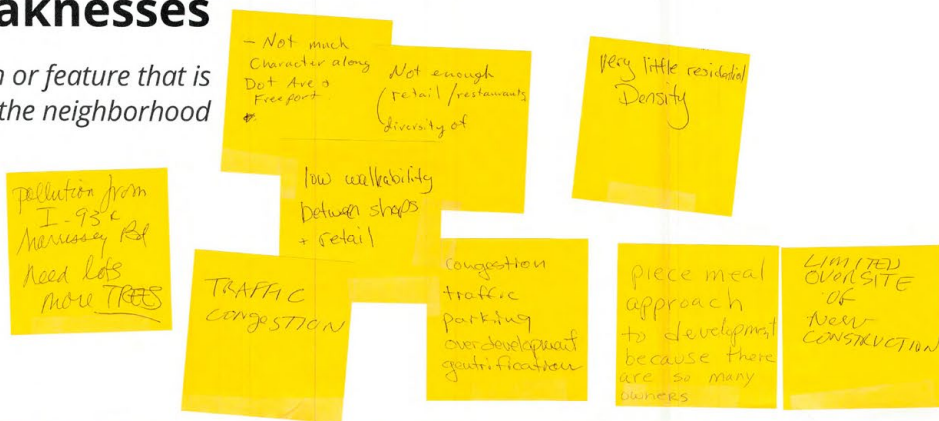 aknesses
n or feature that is
the neighborhood
- Not much
Character along
Dot Ave &
Freeport
Not enough
(retail/restaurants
diversity of
very little residential
Density
low walkability
between shops
+ retail
pollution from
I-93 &
Morrissey Bld
need lots
more TREES
TRAFFIC
CONGESTION
congestion
traffic
parking
overdevelopment
gentrification
piece meal
approach
to development
because there
are so many
owners
LIMITED
OVERSITE
OF
NEW
CONSTRUCTION